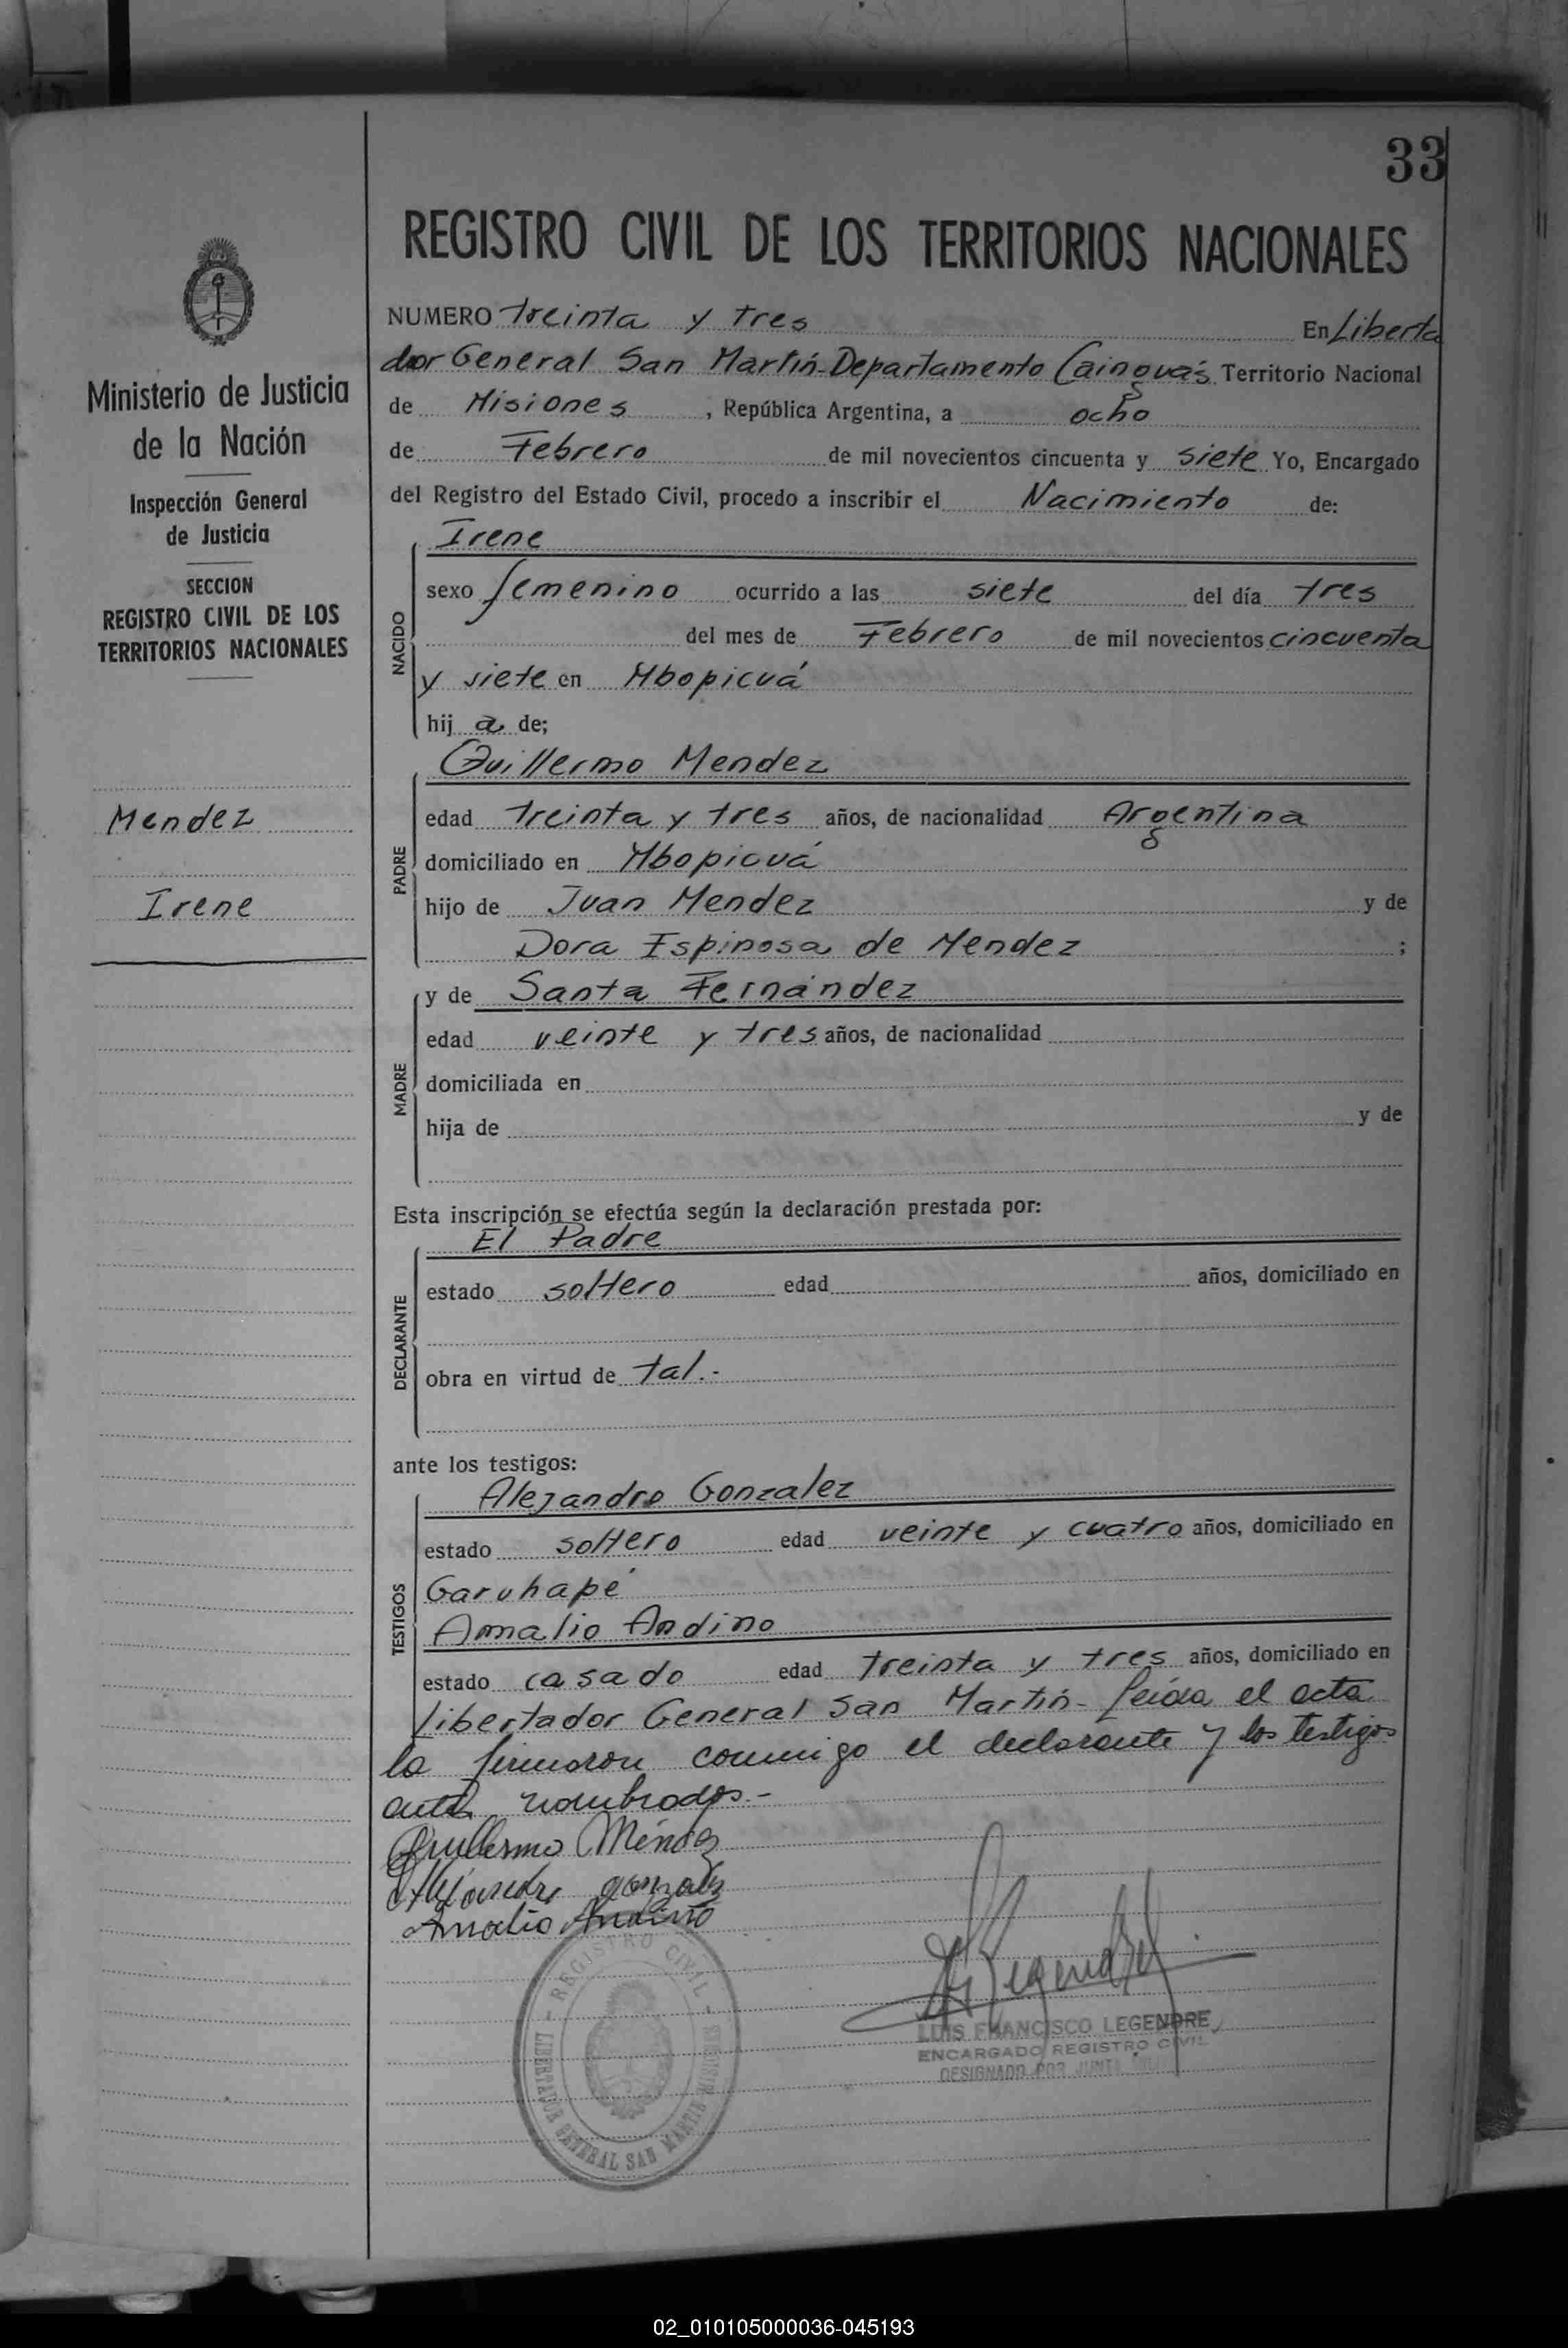 33
REGISTRO CIVIL DE LOS TERRITORIOS NACIONALES
Ministerio de Justicia
de la Nación
Inspección General
de Justicia
SECCION
REGISTRO CIVIL DE LOS
TERRITORIOS NACIONALES
Mendez
Irene
NUMERO treinta y tres En Liberta
dor General San Martín-Departamento Cainguás Territorio Nacional
de Misiones, República Argentina, a ocho
de Febrero de mil novecientos cincuenta y siete Yo, Encargado
del Registro del Estado Civil, procedo a inscribir el Nacimiento de:
NACIDO
Irene
sexo femenino ocurrido a las siete del día tres
del mes de Febrero de mil novecientos cincuenta
y siete en Mbopicuá
hij a de;
PADRE
Guillermo Mendez
edad treinta y tres años, de nacionalidad Argentina
domiciliado en Mbopicuá
hijo de Juan Mendez y de
Dora Espinosa de Mendez ;
MADRE
y de Santa Fernández
edad veinte y tres años, de nacionalidad
domiciliada en
hija de y de
Esta inscripción se efectúa según la declaración prestada por:
DECLARANTE
El Padre
estado soltero edad años, domiciliado en
obra en virtud de tal.-
ante los testigos:
TESTIGOS
Alejandro Gonzalez
estado soltero edad veinte y cuatro años, domiciliado en
Garuhapé
Amalio Andino
estado casado edad treinta y tres años, domiciliado en
Libertador General San Martín- Leída el acta
la firmaron conmigo el declarante y los testigos
antes nombrados.-
Guillermo Méndez
Alejandro gonzalez
Amalio Andino
REGISTRO CIVIL
LIBERTADOR GENERAL SAN MARTIN
Legendre
LUIS FRANCISCO LEGENDRE
ENCARGADO REGISTRO CIVIL
DESIGNADO POR JUNTA
02_010105000036-045193